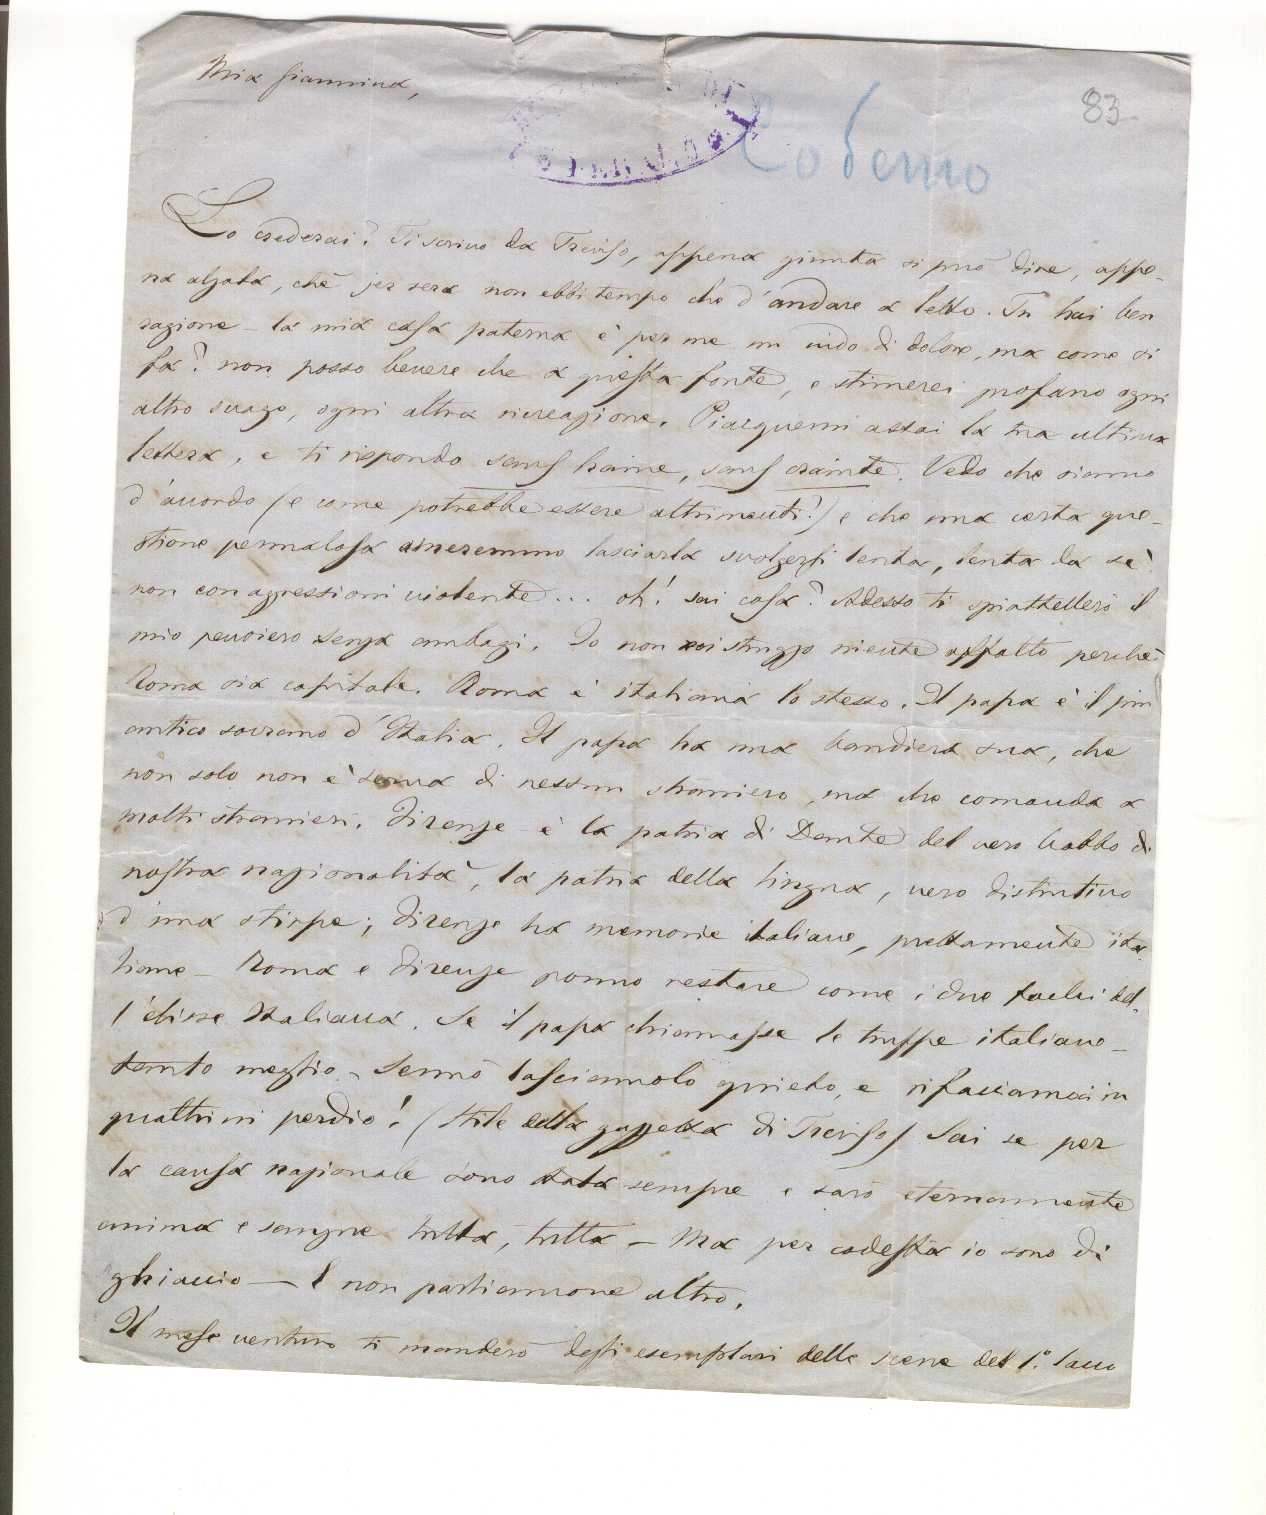 Mia Giannina,
83
Coderno
Lo crederai? Ti scrivo da Treviso, appena giunta si può dire, appe-
na alzata, chè jer sera non ebbi tempo che d'andare a letto. Tu hai ben
ragione - la mia casa paterna è per me un nido di dolore, ma come si
fa? non posso bevere che a questa fonte, e stimerei profano ogni
altro svago, ogni altra ricreazione. Piacquemi assai la tua ultima
lettera, e ti rispondo sans haine, sans crainte. Vedo che siamo
d'accordo (e come potrebbe essere altrimenti?) e che una certa que-
stione permalosa ameremmo lasciarla svolgersi lenta, lenta da sè
non con agressioni violente... oh! sai cosa? Adesso ti spiattellerò il
mio pensiero senza ambagi. Io non mi struggo niente affatto perchè
Roma sia capitale. Roma è italiana lo stesso. Il papa è il più
antico sovrano d'Italia. Il papa ha una bandiera sua, che
non solo non è serva di nessun straniero, ma che comanda a
molti stranieri. Firenze è la patria di Dante del vero babbo di
nostra nazionalità, la patria della lingua, vero distintivo
d'una stirpe; Firenze ha memorie italiane, prettamente ita-
liane - Roma e Firenze ponno restare come i due fochi del-
l'elisse Italiana. Se il papa chiamasse le truppe italiane -
tanto meglio - Sennò lasciamolo quieto, e rifacciamoci in
quattrini perdio! (Stile della gazzetta di Treviso) Sai se per
la causa nazionale sono stata sempre e sarò eternamente
anima e sangue tutta, tutta - Ma per codesta io sono di
ghiaccio - E non parliamone altro.
Il mese venturo ti manderò degli esemplari delle scene del 1.°